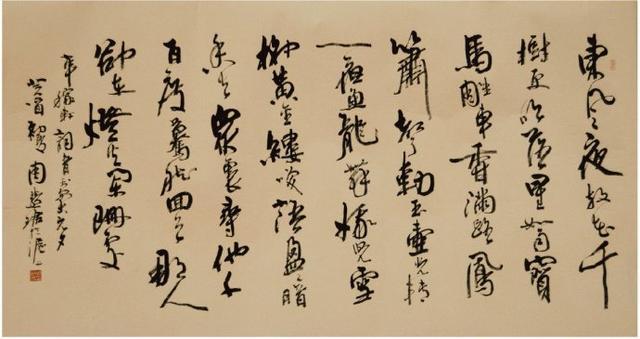 東風夜放花千
樹更吹落星如雨寶
馬雕車香滿路鳳
簫聲動玉壺光轉
一夜魚龍舞蛾兒雪
柳黃金縷笑語盈盈暗
香去眾裏尋他千
百度驀然回首那人
卻在燈火闌珊處
辛稼軒詞青玉案元夕
周慧珺